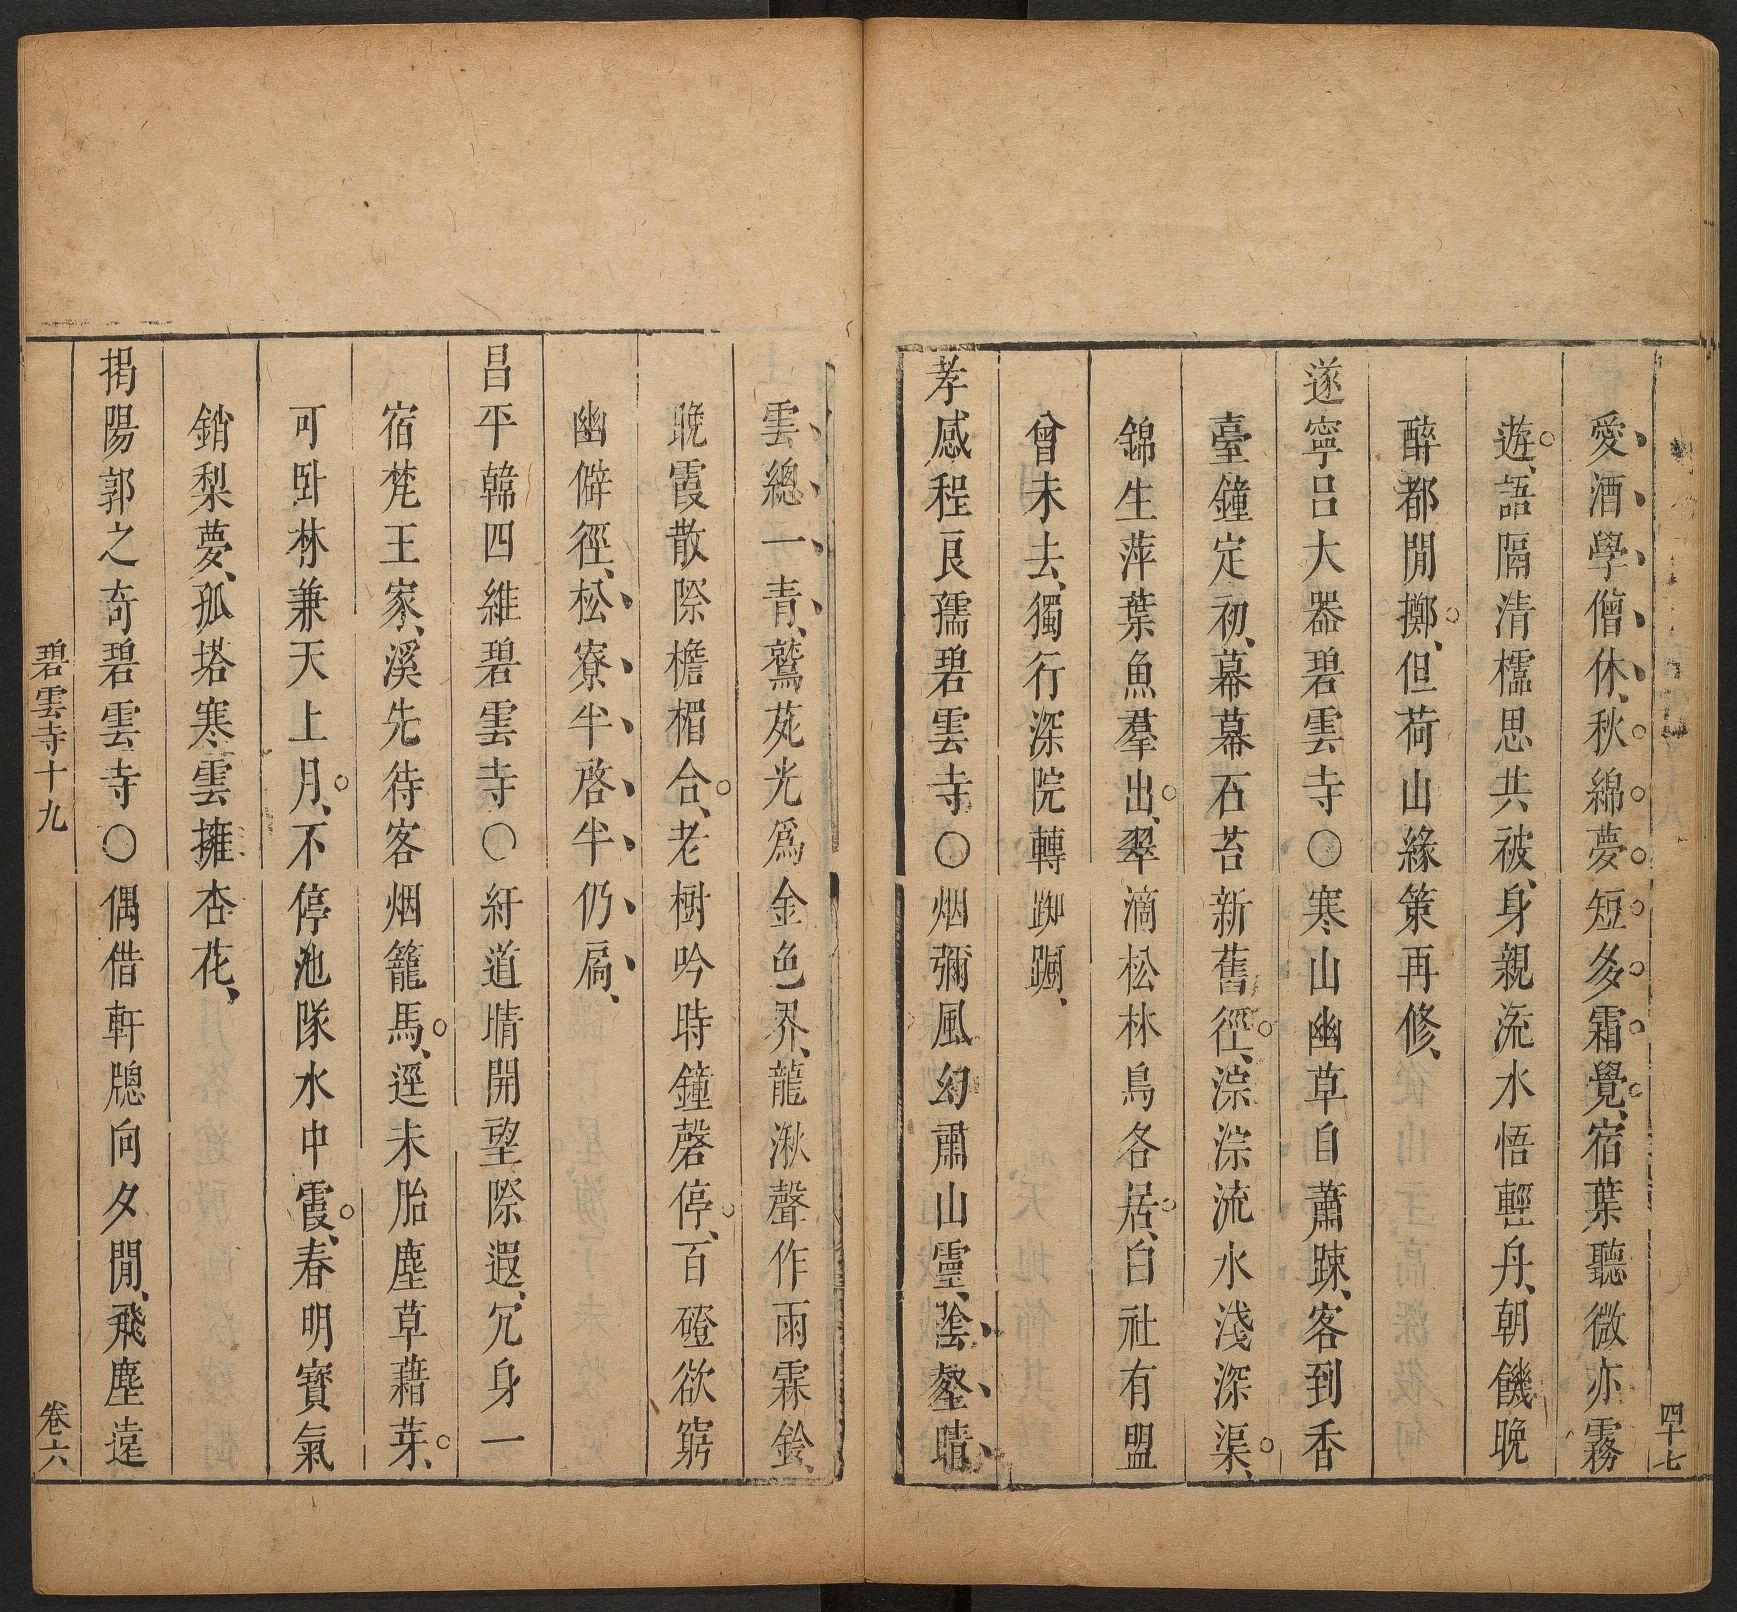 四十七
愛酒學僧休、秋綿夢短多霜覺、宿葉聽微亦霧
遊、語隔清檽思共被、身親流水悟輕舟、朝饑晚
醉都閒擲、但荷山緣策再修、
遂寧呂大器碧雲寺〇寒山幽草自蕭踈、客到香
臺鐘定初、幕幕石苔新舊徑、淙淙流水淺深渠、
錦生萍葉魚羣出、翠滴松林鳥各居、白社有盟
曾未去、獨行深院轉踟躕、
孝感程良孺碧雲寺〇烟彌風幻肅山靈、陰壑晴
雲總一青、鷲苑光爲金色界、龍湫聲作雨霖鈴、
晚霞散際檐楣合、老樹吟時鐘磬停、百磴欲窮
幽僻徑、松寮半啓半仍扃、
昌平韓四維碧雲寺〇紆道情開望際遐、冗身一
宿梵王家、溪先待客烟籠馬、逕未胎塵草藉芽、
可卧林兼天上月、不停池隊水中霞、春明寳氣
銷梨夢、孤塔寒雲擁杏花、
揭陽郭之奇碧雲寺〇偶借軒牕向夕閒、飛塵遠
碧雲寺十九
卷六